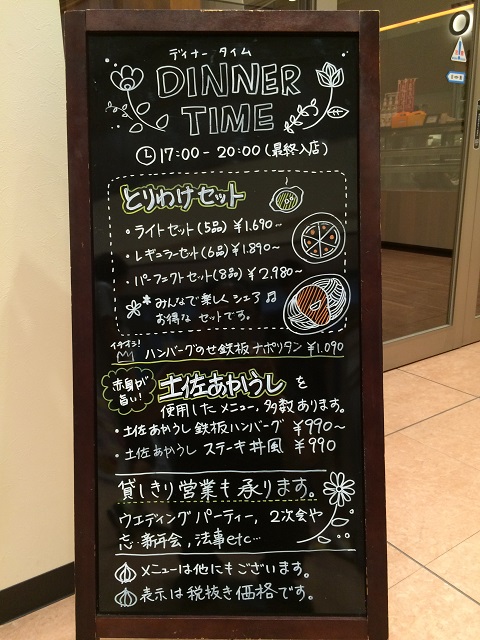 ディナー タイム
DINNER
TIME
17:00 - 20:00 (最終入店)
とりわけセット
・ライトセット(5品) ¥1.690~
・レギュラーセット(6品) ¥1.890~
・パーフェクトセット(8品) ¥2.980~
みんなで楽しくシェア♫
お得な セットです。
イチオシ!
ハンバーグのせ鉄板ナポリタン ¥1.090
赤身が
旨い!
土佐あかうし を
使用したメニュー,多数あります。
・土佐あかうし 鉄板ハンバーグ ¥990~
・土佐あかうし ステーキ丼風 ¥990
貸しきり営業も承ります。
ウエディングパーティー, 2次会や
忘・新年会,法事etc…
メニューは他にもございます。
表示は税抜き価格です。